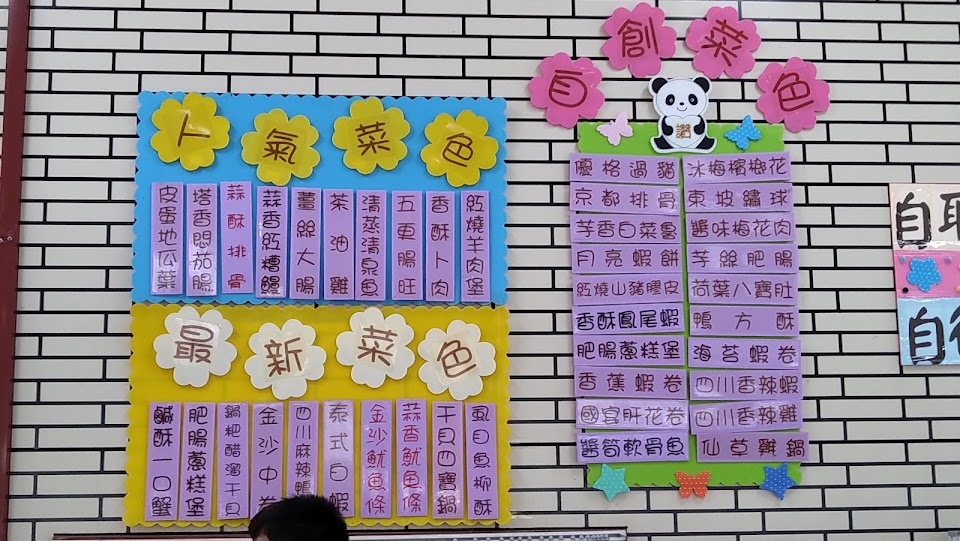 卜氣菜色
紅燒羊肉堡
香酥卜肉
五更腸旺
清蒸清泉魚
茶油雞
薑絲大腸
蒜香紅糟鰻
蒜酥排骨
塔香悶茄腸
皮蛋地瓜葉
最新菜色
虱目魚柳酥
干貝四寶鍋
蒜香魷魚條
金沙魷魚條
泰式白蝦
四川麻辣鴨
金沙中卷
鍋粑醋溜干貝
肥腸蔥糕堡
鹹酥一口蟹
自創菜色
讚
優格過貓
京都排骨
芋香白菜魯
月亮蝦餅
紅燒山豬腰皮
香酥鳳尾蝦
肥腸蔥糕堡
香蕉蝦卷
國宴肝花卷
醬筍軟骨魚
冰梅檳榔花
東坡鏽球
醬味梅花肉
芋絲肥腸
荷葉八寶肚
鴨方酥
海苔蝦卷
四川香辣蝦
四川香辣雞
仙草雞鍋
自取
自